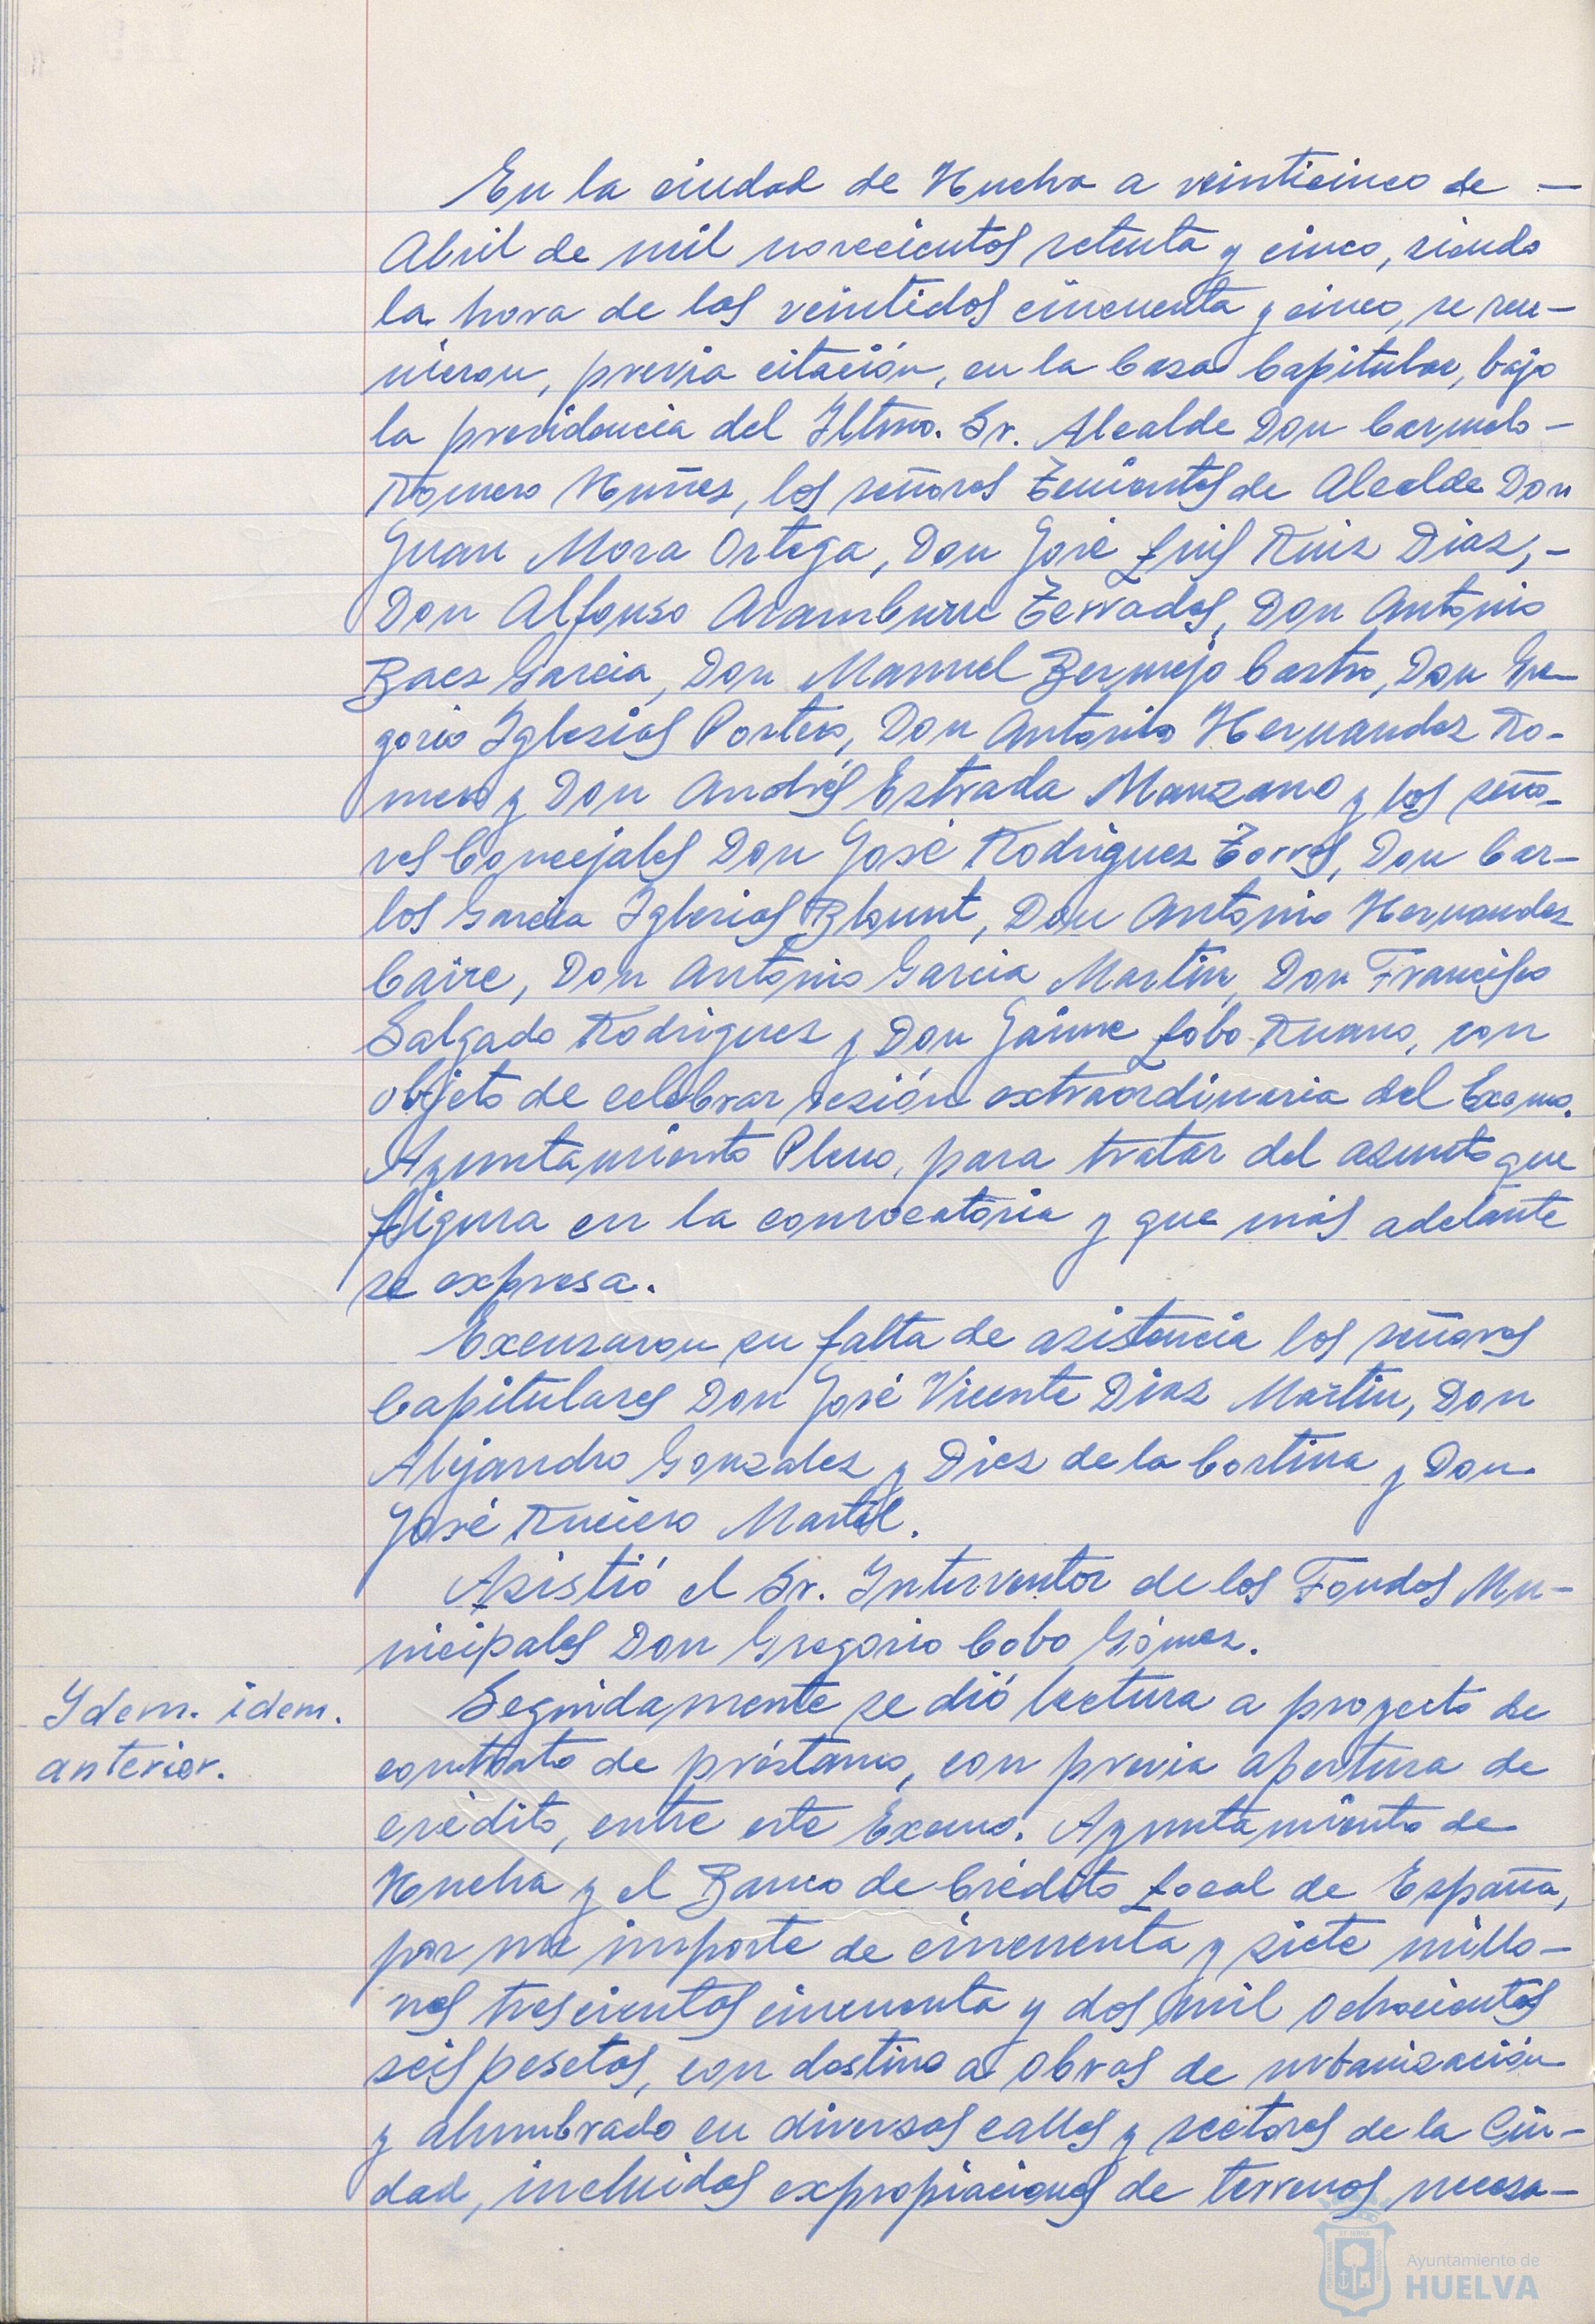 En la ciudad de Huelva a veinticinco de —
Abril de mil novecientos setenta y cinco, siendo
la hora de las veintidos cincuenta y cinco, se reu-
nieron, previa citación, en la Casa Capitular, bajo
la presidencia del Iltmo. Sr. Alcalde Don Carmelo —
Romero Nuñez, los señores Tenientes de Alcalde Don
Juan Mora Ortega, Don José Luis Ruiz Diaz, —
Don Alfonso Aramburu Terrades, Don Antonio
Baez Garcia, Don Manuel Bermejo Castro, Don Gre-
gorio Iglesias Portero, Don Antonio Hernandez Ro-
mero y Don Andrés Estrada Manzano y los seño-
res Concejales Don José Rodriguez Torres, Don Car-
los Garcia Iglesias Blount, Don Antonio Hernandez
Caire, Don Antonio Garcia Martin, Don Francisco
Salgado Rodriguez y Don Jaime Lobo Ruano, con
objeto de celebrar sesión extraordinaria del Excmo.
Ayuntamiento Pleno, para tratar del asunto que
figura en la convocatoria y que más adelante
se expresa.
Excusaron su falta de asistencia los señores
Capitulares Don José Vicente Diaz Martin, Don
Alejandro Gonzalez y Diez de la Cortina y Don
José Ruciero Martel.
Asistió el Sr. Interventor de los Fondos Mu-
nicipales Don Gregorio Cobo Gómez.
Ydem. idem.
anterior.
Seguidamente se dió lectura a proyecto de
contrato de préstamo, con previa apertura de
crédito, entre este Excmo. Ayuntamiento de
Huelva y el Banco de Crédito Local de España,
por un importe de cincuenta y siete millo-
nes trescientas cincuenta y dos mil ochocientas
seis pesetas, con destino a obras de urbanización
y alumbrado en diversas calles y sectores de la Ciu-
dad, incluidas expropiaciones de terrenos necesa-
Ayuntamiento de
HUELVA